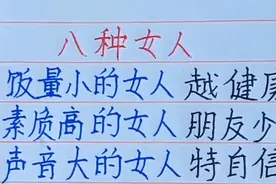 八种女人
饭量小的女人 越健康
素质高的女人 朋友少
声音大的女人 特自信